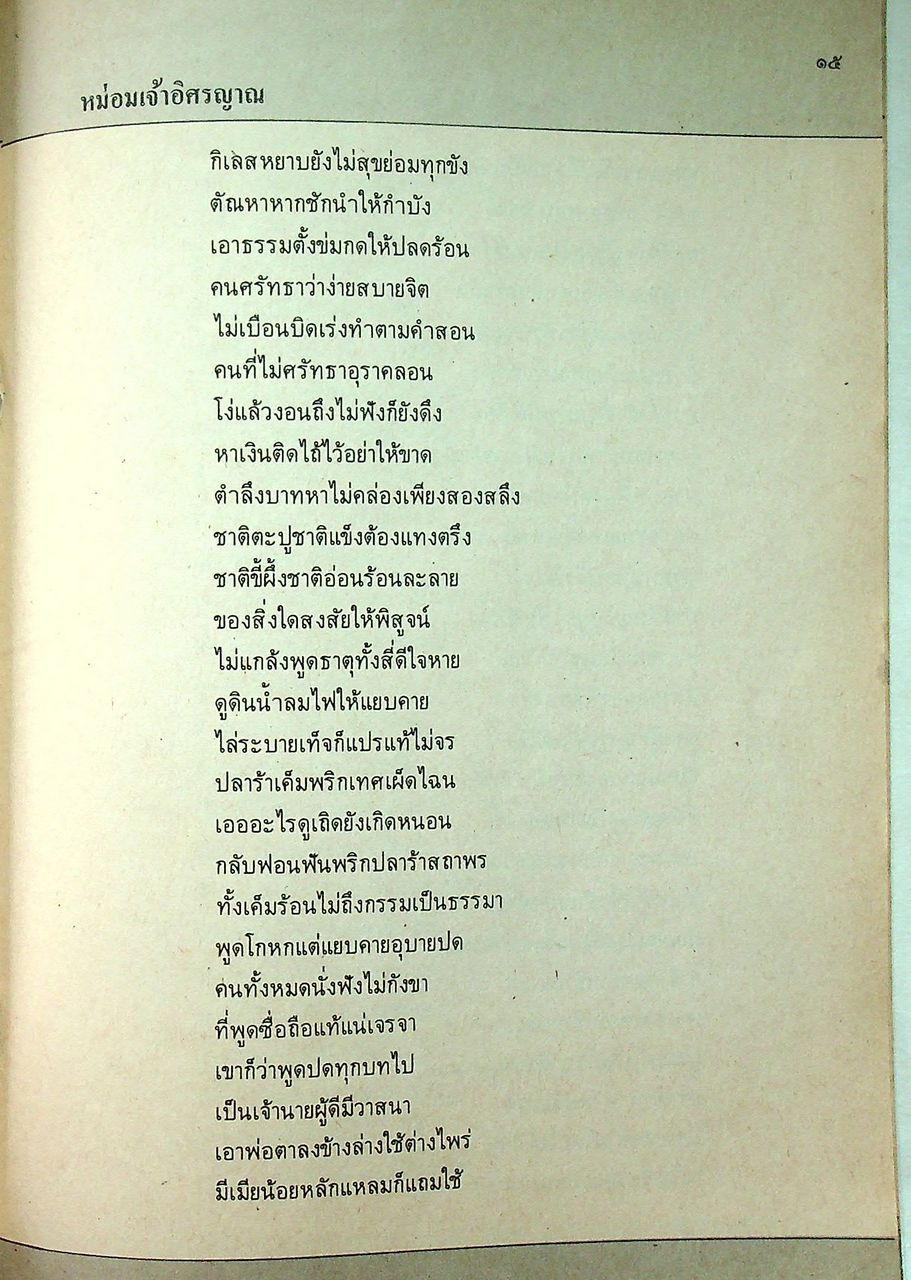 ๑๕
หม่อมเจ้าอิศรญาณ
กิเลสหยาบยังไม่สุขย่อมทุกขัง
ตัณหาหากชักนำให้กำบัง
เอาธรรมตั้งข่มกดให้ปลดร้อน
คนศรัทธาว่าง่ายสบายจิต
ไม่เบือนบิดเร่งทำตามคำสอน
คนที่ไม่ศรัทธาอุราคลอน
โง่แล้วงอนถึงไม่ฟังก็ยังดึง
หาเงินติดไถ้ไว้อย่าให้ขาด
ตำลึงบาทหาไม่คล่องเพียงสองสลึง
ชาติตะปูชาติแข็งต้องแทงตรึง
ชาติขี้ผึ้งชาติอ่อนร้อนละลาย
ของสิ่งใดสงสัยให้พิสูจน์
ไม่แกล้งพูดธาตุทั้งสี่ดีใจหาย
ดูดินน้ำลมไฟให้แยบคาย
ไล่ระบายเท็จก็แปรแท้ไม่จร
ปลาร้าเค็มพริกเทศเผ็ดไฉน
เอออะไรดูเถิดยังเกิดหนอน
กลับฟอนฟันพริกปลาร้าสถาพร
ทั้งเค็มร้อนไม่ถึงกรรมเป็นธรรมา
พูดโกหกแต่แยบคายอุบายปด
คนทั้งหมดนั่งฟังไม่กังขา
ที่พูดซื่อถือแท้แน่เจรจา
เขาก็ว่าพูดปดทุกบทไป
เป็นเจ้านายผู้ดีมีวาสนา
เอาพ่อตาลงข้างล่างใช้ต่างไพร่
มีเมียน้อยหลักแหลมก็แถมใช้